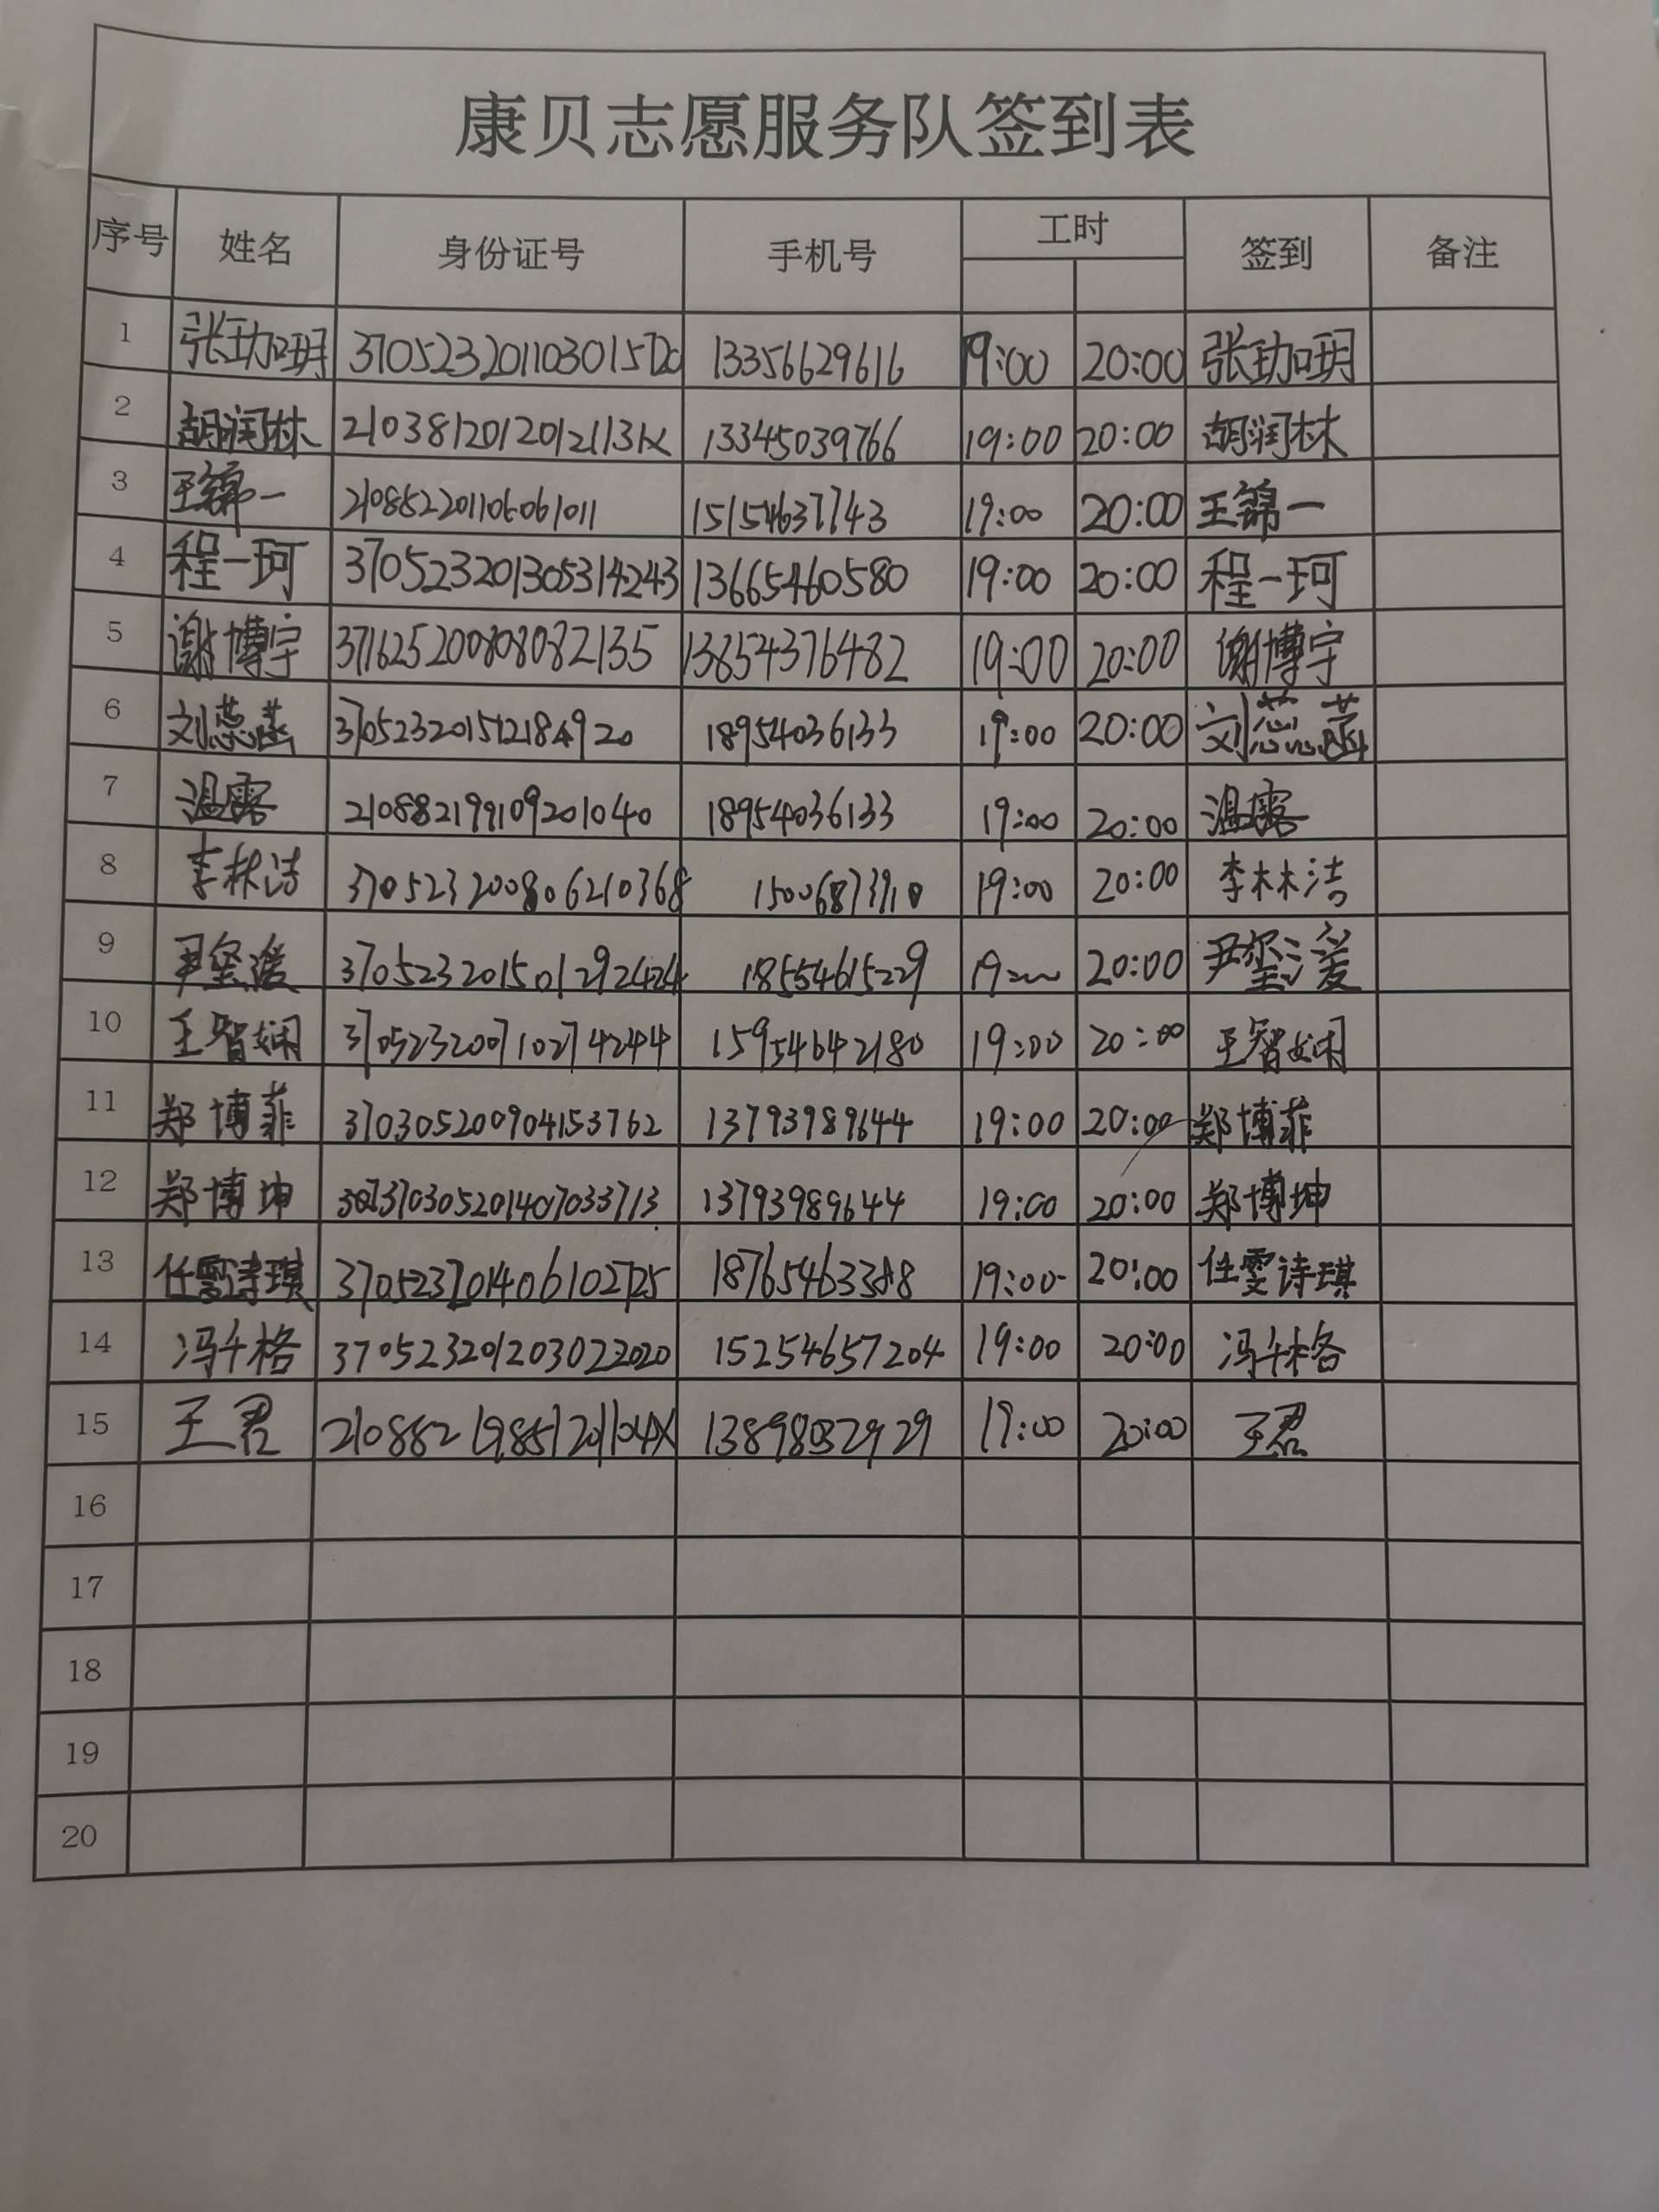 康贝志愿服务队签到表
序号 姓名 身份证号 手机号 工时 签到 备注
1 13356629616 19:00 20:00
2 胡润林 13345039766 19:00 20:00 胡润林
3 王锦一 15154637743 19:00 20:00 王锦一
4 程一珂 370523201305314243 13665460580 19:00 20:00 程一珂
5 谢博宇 371625200808082135 13854376482 19:00 20:00 谢博宇
6 刘蕊菡 18954036133 19:00 20:00 刘蕊菡
7 温露 210882199109201040 18954036133 19:00 20:00 温露
8 李林洁 370523200806210368 19:00 20:00 李林洁
9 370523201501292424 18554615229 20:00
10 王智娴 370523200710274244 15954642180 19:00 20:00 王智娴
11 郑博菲 370305200904153762 13793989644 19:00 20:00 郑博菲
12 郑博坤 370305201407033713 13793989644 19:00 20:00 郑博坤
13 任雯诗琪 19:00 20:00 任雯诗琪
14 冯千格 370523201203022020 15254657204 19:00 20:00 冯千格
15 王君 19:00 20:00 王君
16
17
18
19
20